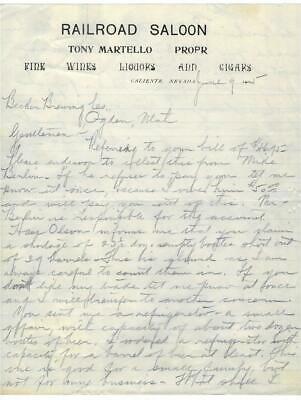 RAILROAD SALOON
TONY MARTELLO PROPR
FINE WINES LIQUORS AND CIGARS
CALIENTE, NEVADA June 9
Becker Brewing Co,
Ogden, Utah
Gentlemen - Referring to your bill of
Please endeavor to collect this from Mike
If he refuses to pay you let me
know at once, because I owe him $50
and will pay you out of this. Mr
is responsible for this account.
Olson informs me that you claim
a shortage of doz. empty bottles short out
of 29 barrels - This is as I am
always careful to count them in. If you
don't like my trade let me know at once
and I will transfer to another concern.
You sent me a refrigerator - a small
affair, with capacity of about two dozen
bottles of beer. I wanted a refrigerator with
capacity for a barrel of beer at least. This
one is good for a small family but
not for my business - What shall I